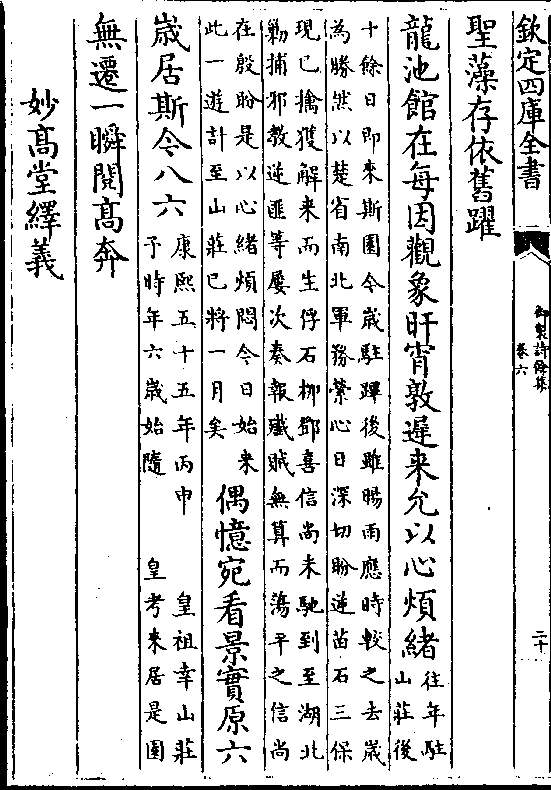 欽定四庫全書
御製詩餘集
卷六
二十
聖藻存依舊躍
龍池館在每因觀象旰宵敦遲来允以心煩緒
往年駐
山莊後
十餘日即來斯園今歲駐蹕後雖暘雨應時較之去歲
為勝然以楚省南北軍務縈心日深切盼逆苗石三保
現已擒獲解来而生俘石栁鄧喜信尚未馳到至湖北
勦捕邪教逆匪等屢次奏報殱賊無算而蕩平之信尚
在殷盼是以心緒煩悶今日始来
此一遊計至山莊已將一月矣
偶憶宛看景實原六
歲居斯今八六
康熙五十五年丙申 皇祖幸山莊
予時年六歲始隨 皇考来居是園
無遷一瞬閱髙奔
妙髙堂繹義